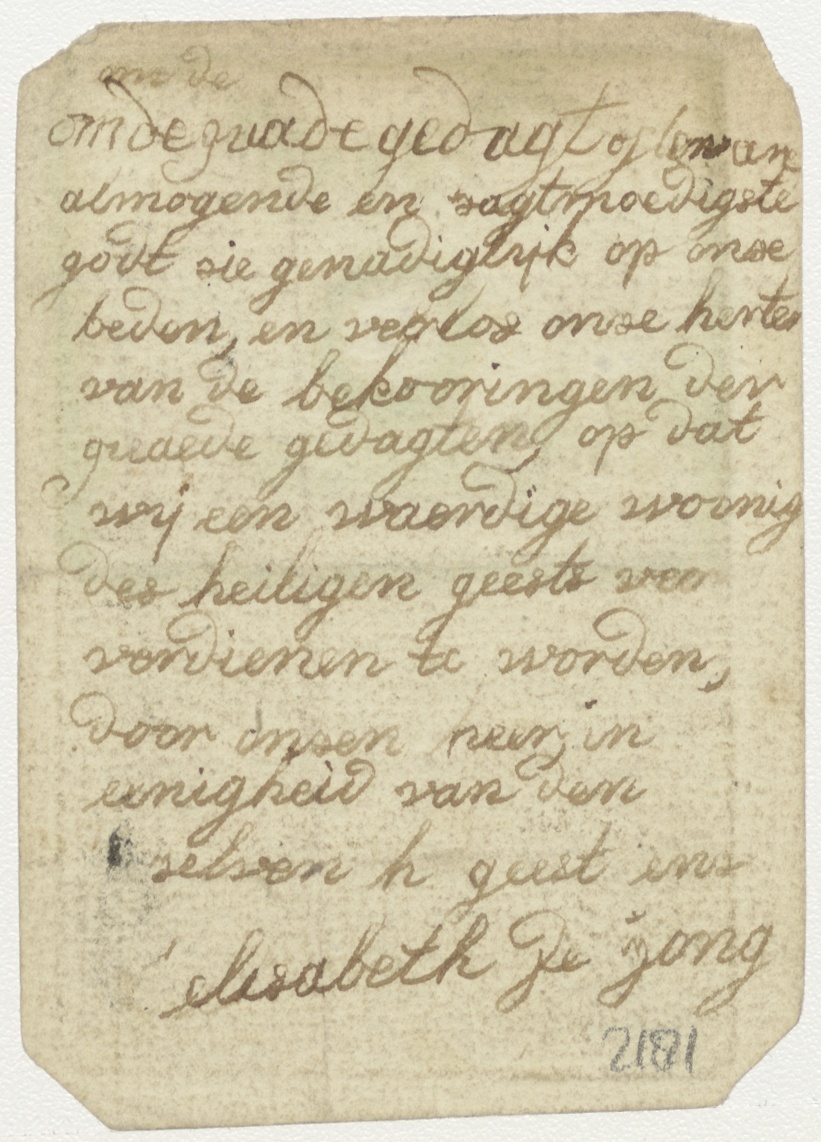 om de
om de quade gedagt
almogende en sagtmoedigste
godt sie genadiglijk op onse
beden, en verlos onse herten
van de bekooringen der
quaede gedagten, op dat
wij een waerdige woonig
des heiligen geests ver
verdienen te worden,
door onsen heer, in
einigheid van den
selven h geest ens
elisabeth De jong
2181